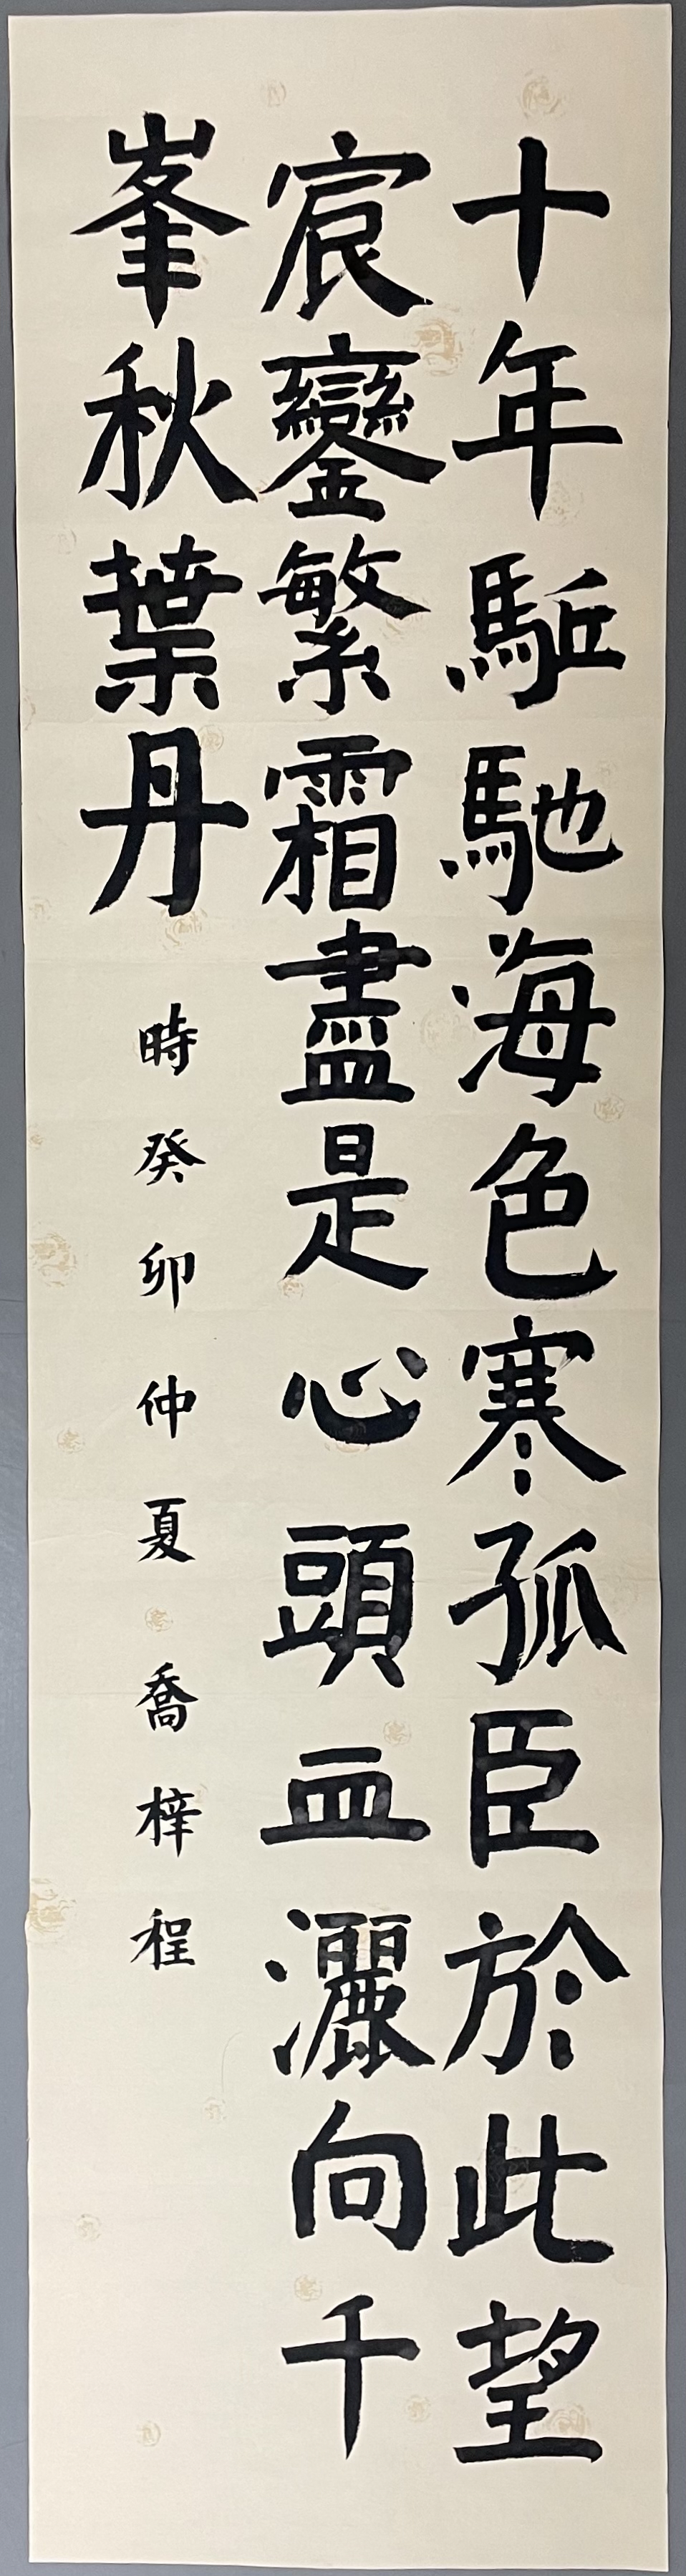 十年駈馳海色寒孤臣於此望
宸鑾繁霜盡是心頭血灑向千
峯秋葉丹 時癸卯仲夏 喬梓程